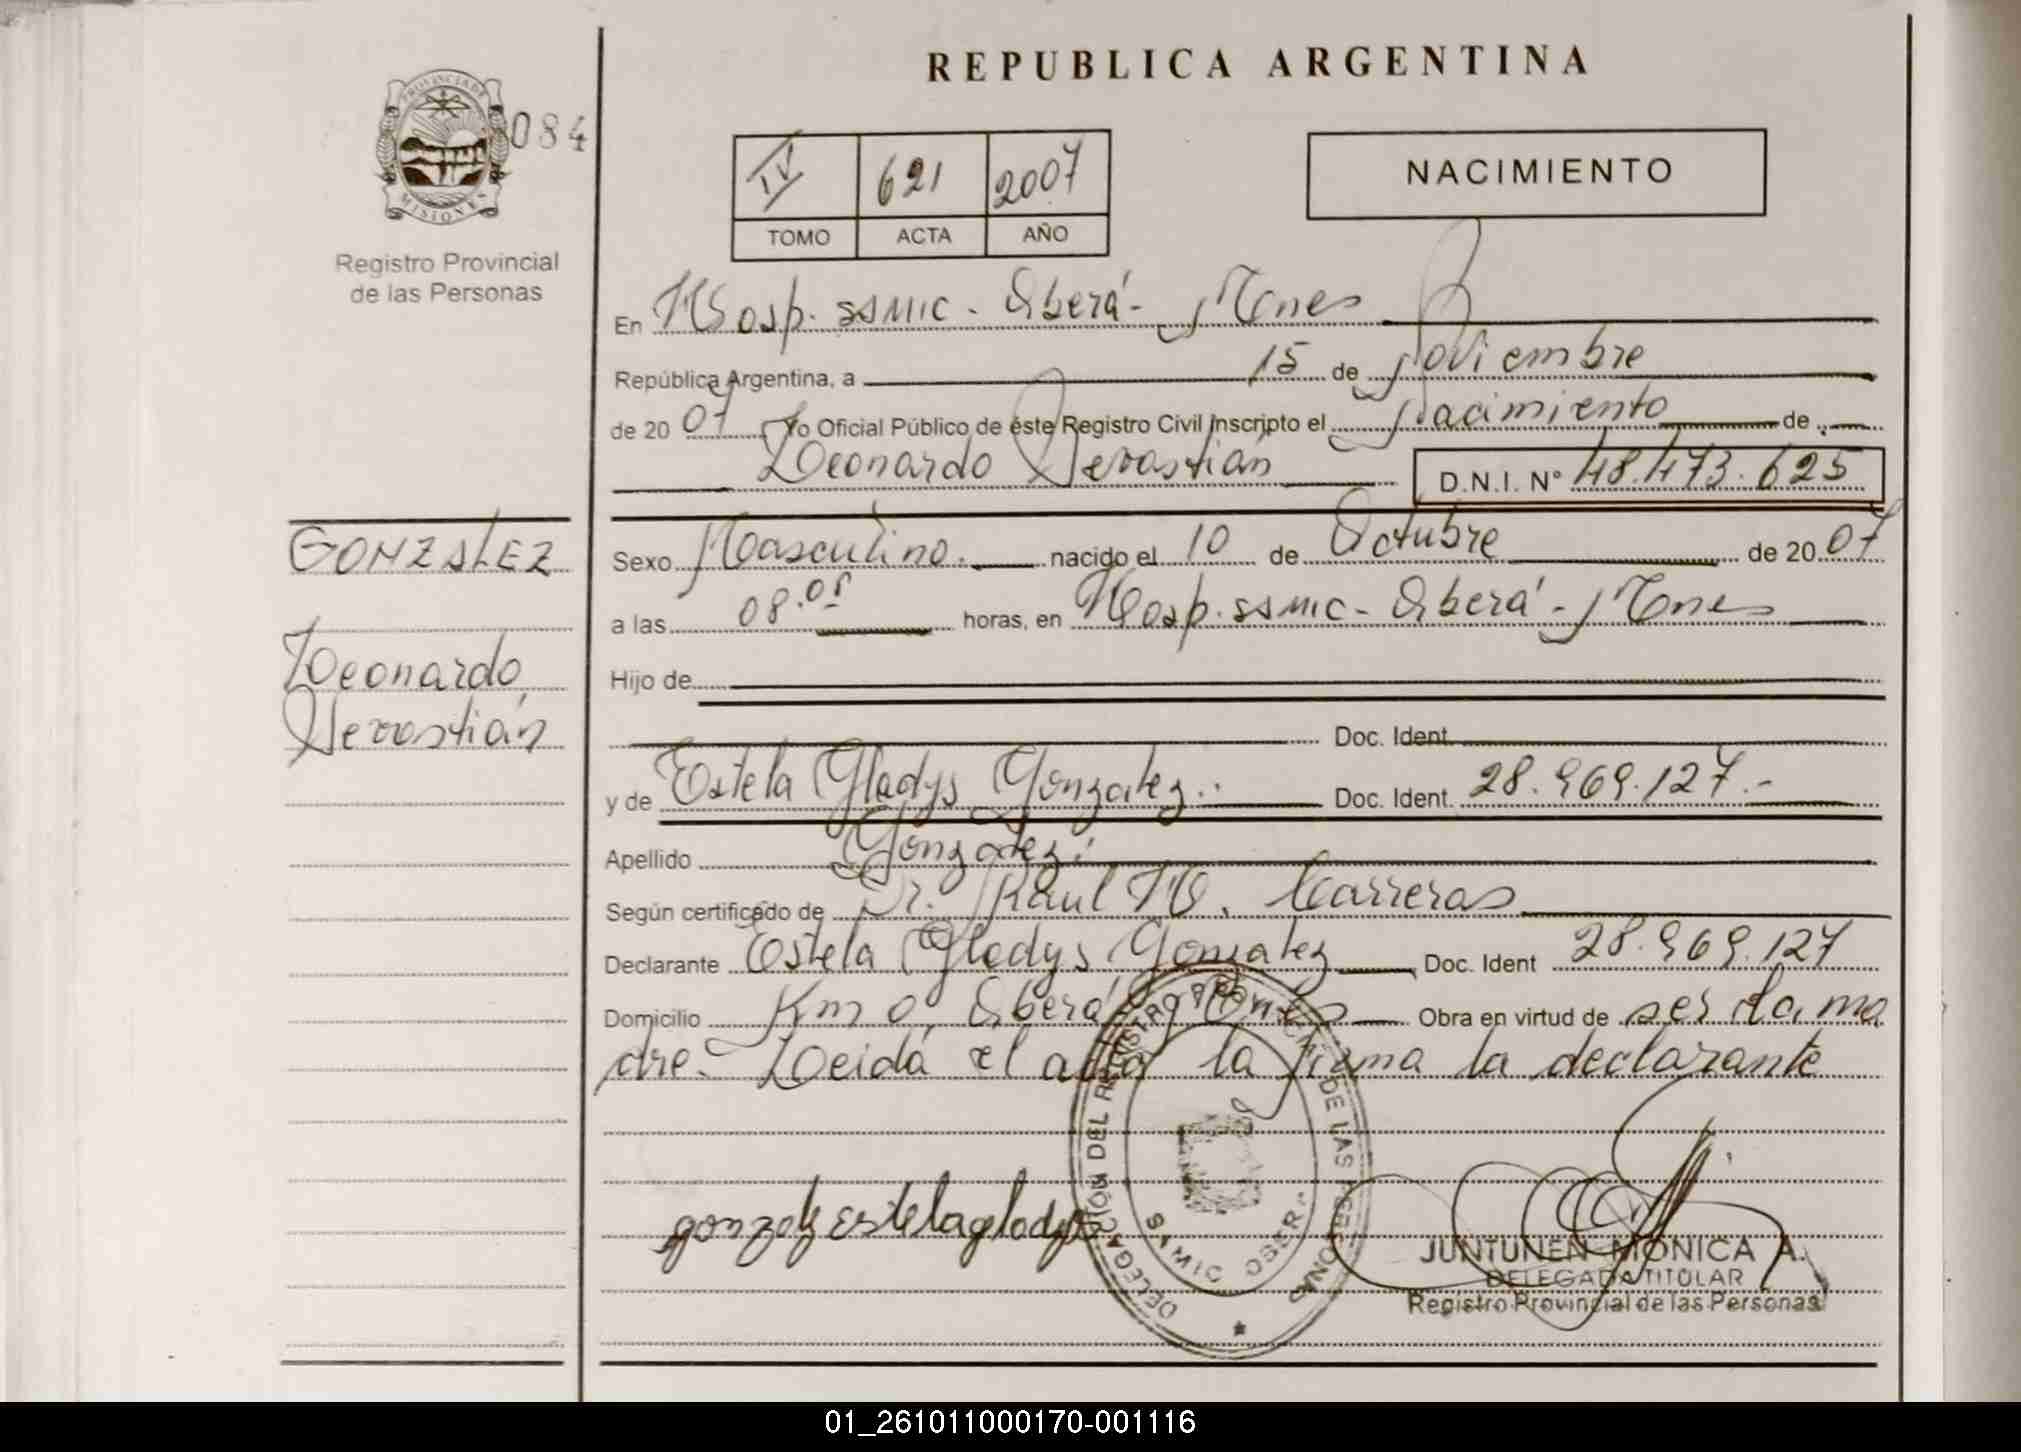 REPUBLICA ARGENTINA
PROVINCIA DE
MISIONES
084
Registro Provincial
de las Personas
IV 621 2007
TOMO ACTA AÑO
NACIMIENTO
En Hosp. SSMIC - Oberá - Mnes
República Argentina, a 15 de Noviembre
de 20 07 Yo Oficial Público de éste Registro Civil Inscripto el Nacimiento de
Leonardo Sevastián D.N.I. N° 48.473.625
GONZALEZ
Leonardo
Sevastián
Sexo Masculino. nacido el 10 de Octubre de 20 07
a las 08.05 horas, en Hosp. SSMIC - Oberá - Mnes
Hijo de
Doc. Ident.
y de Estela Gladys Gonzalez.. Doc. Ident. 28.969.127.-
Apellido Gonzalez.
Según certificado de Dr. Raul H. Carreras
Declarante Estela Gladys Gonzalez Doc. Ident 28.969.127
Domicilio Km 0 Oberá Mnes Obra en virtud de ser la ma
dre. Leida el acta la firma la declarante
DELEGACIÓN DEL REGISTRO PROVINCIAL DE LAS PERSONAS
gonzalez estela gladys
JUNTUNEN MONICA A.
DELEGADA TITULAR
Registro Provincial de las Personas
01_261011000170-001116